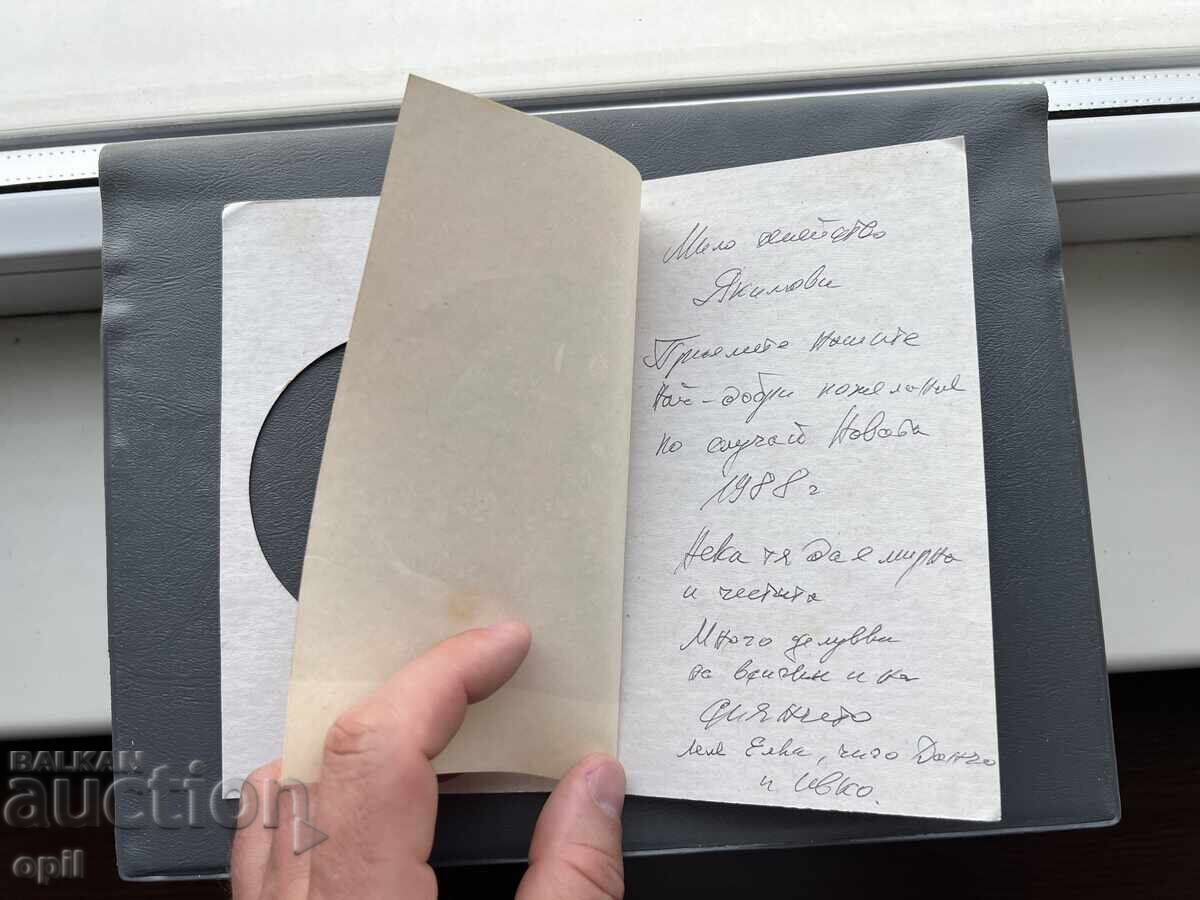 Мило семейство
Якимови
Приемете нашите
най-добри пожелания
по случай Новата
1988 г
Нека тя да е мирна
и честита
Много целувки
за всички и на
леля Елка, чичо Данчо
и Ивко.
BALKAN
auction
opil